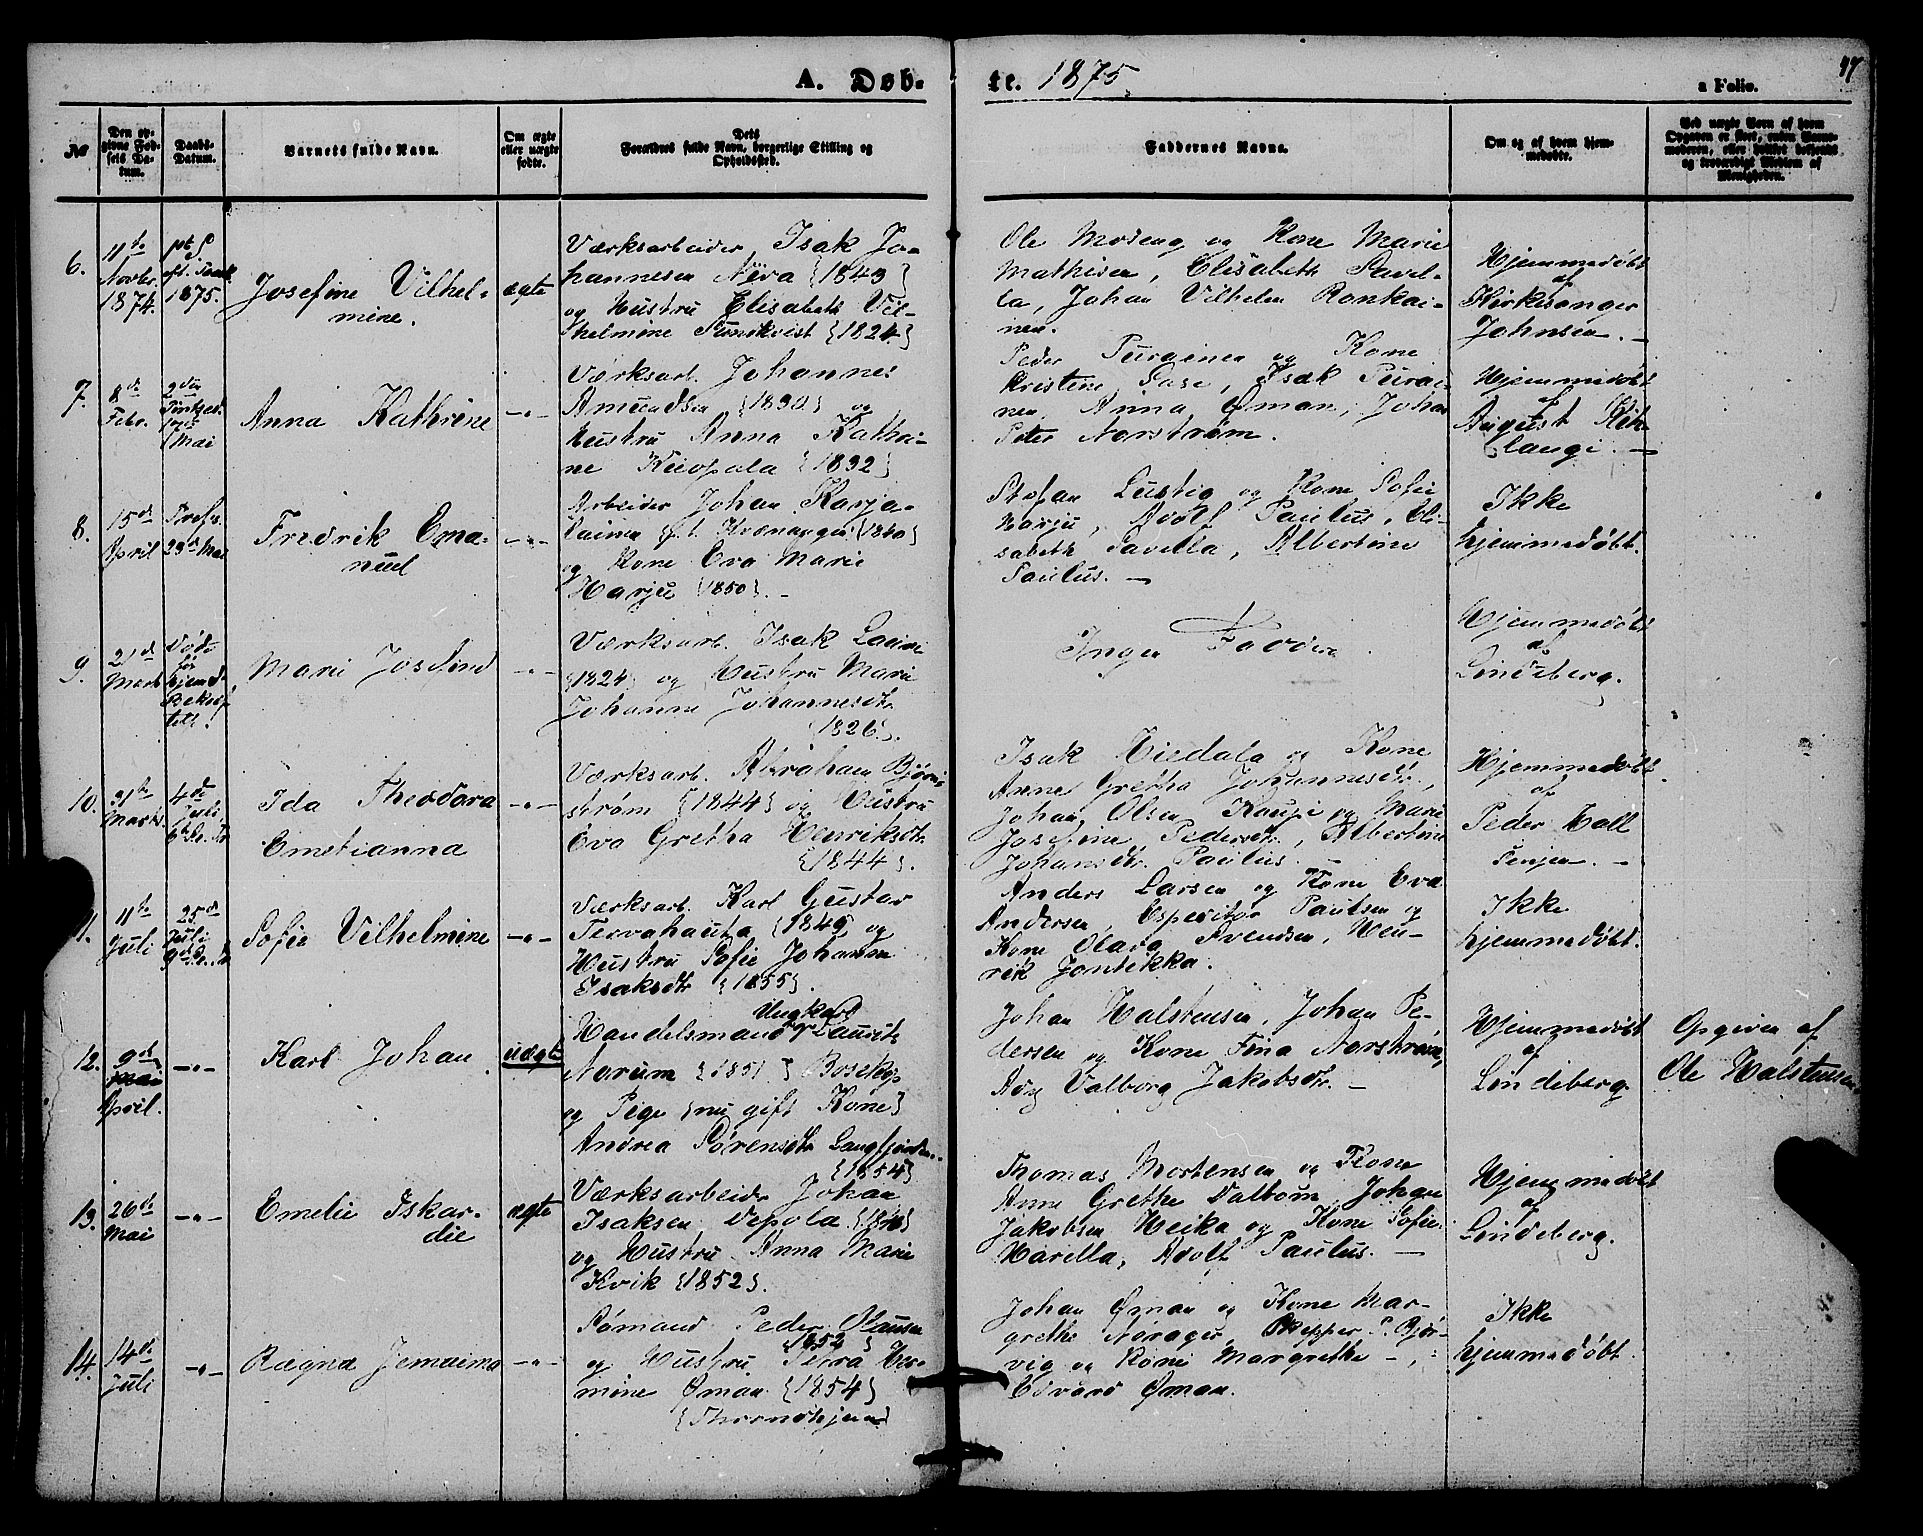 A. Døb-
te. 1875.
47
a Folio.
№
Den opgivne Fødsels Datum.
Daabs-Datum.
Barnets fulde Navn.
Om ægte eller uægte fødte.
Dets Forældres fulde Navn, borgerlige Stilling og Opholdssted.
Faddernes Navne.
Om og af hvem hjemmedøbte.
6.
11te
Novbr.
1874.
1875.
Josefine Vilhel-
mine.
ægte
Værksarbeider Isak Jo-
hannesen Niva {1849}
og Hustru Elisabeth Vil-
helmine Sundkvist {1824}
Ole Moseng og Kone Marie
Mathisen, Elisabeth Pavel-
la, Johan Vilhelm Ronkai-
nen.
Hjemmedøbt
af
Kirkesanger
Johnsen. -
7.
8de
Febr.
2den
Mai
Anna Kathrine
-„-
Værksarb. Johannes
Amundsen {1830} og
Hustru Anna Kathri-
ne Kuopala {1832}
Peder Purainen og Kone
Kristine, Isak Purai-
nen, Anna Øman, Johan
Peter Norstrøm.
Hjemmedøbt
af
August Kih-
langi. -
8.
15de
April
23de Mai
Fredrik Ema-
nuel
-„-
Arbeider Johan Karja-
lainen f. t. Kvænangen {1840}
og Kone Eva Marie
Harju {1850}. -
Stefan Lustig og Kone Sofie
Harju, Adolf Paulus, Eli-
sabeth Pavella, Albertine
Paulus. -
Ikke
hjemmedøbt.
9.
21de
Marts
Død
før
hjemd.
Marie Josefine
-„-
Værksarb. Isak Laari
{1824} og Hustru Marie
Johanne Johannesdtr.
{1826}.
Ingen Faddere.
Hjemmedøbt
af
Lindeberg.
10.
31te
Marts.
4de
Juli
Ida Theodora
Emetianna
-„-
Værksarb. Abraham Bjørn-
strøm {1844} og Hustru
Eva Gretha Henriksdtr.
{1844}.
Isak Hiedala og Kone
Anne Gretha Johannesdtr.,
Johan Olsen Kaupi og Marie
Josefine Pedersdtr., Albertine
Johansdtr. Paulus. -
Hjemmedøbt
af
Peder Hall
Senjen. -
11.
11te
Juli
25de
Juli
Sofie Vilhelmine
-„-
Værksarb. Karl Gustav
Tervahauta {1849} og
Hustru Sofie Johanne
Isaksdtr. {1855}.
Anders Larsen og Kone Eva
Andersen, Expeditør Paulsen og
Kone Olava Svendsen, Hen-
rik Jontikka.
Ikke
hjemmedøbt.
12.
9de
April.
-„-
Karl Johan
uægte
Ungkarl
Handelsmand Laurits
Norum {1851} Bosekop
og Pige {nu gift Kone}
Andrea Sørensdtr. Langfjorden.
{1854}
Johan Halstensen, Johan Pe-
dersen og Kone Fina Norstrøm,
Valborg Jakobsdtr. -
Hjemmedøbt
af
Lindeberg.
Opgiven af
Ole Halstensen
13.
26de
Mai
-„-
Emelie Iskar-
die
ægte
Værksarbeider Johan
Isaksen Vepola
og Hustru Anna Marie
Kvik {1852}.
Thomas Mortensen og Kone
Anne Grethe Dalbom, Johan
Jakobsen Heika og Kone Sofie
Marella, Adolf Paulus. -
Hjemmedøbt
af
Lindeberg.
14.
14de
Juli
-„-
Ragna Jemaima
-„-
Sømand Peder Olausen
{1852}
og Hustru Petra Her-
mine Øman {1854}
{Throndhjem}
Johan Øman og Kone Mar-
grethe Norager, Skipper P. Bjør-
vig og Kone Margrethe -„-
Edvard Øman.
Ikke
hjemmedøbt.